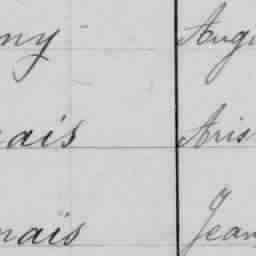 ny Augu
nais Aris
nais Jean